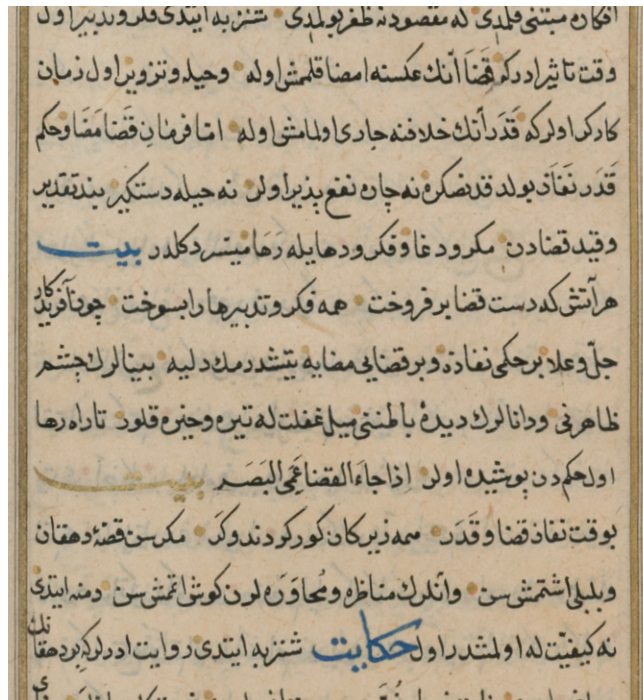 افكاره مبتنى قلمدى كه مقصودنه ظفر بولمدى شنزبه ايتدى فكر و تدبير اول
وقت تاثير ادر كه قَضَا آنك عكسنه امضا قلمش اوله وحيله وتزوير اول زمان
كاركر اولر كه قَدَر آنك خلافنه جارى اولمامش اوله امّا فرمان قَضَا مَضَا وحكم
قَدَر نَفَاذ بولدقدنصكره نه چاره نفع پذير اولر نه حيله دستكير بند تقدير
وقيد قضادن مكر ودغا وفكر ودها يله رَها ميسّر دكلدر بيت
هر آتش كه دست قضا بر فروخت همه فكر و تدبيرها را بسوخت چون آفريدكار
جلّ وعلا بر حكمى نفاذه و بر قضايى مضايه يتشدرمك دليه بينالرك چشم
ظاهرنى ودانالرك ديدۀ باطننى ميل غفلت له تيره وخيره قلور تا راه رها
اول حكم دن پوشيده اولر اِذا جاءَ القضا عَمِىَ البَصَر بيت
بوقت نفاذ قضا و قَدَر همه زيركان كور كردند و كر مكر سن قصّۀ دهقان
وبلبلى اشتمش سن وانلرك مناظره ومُحاوَره لرن كوش اتمش سن دمنه ايتدى
نه كيفيّت له اولمشدر اول حكايت شنزبه ايتدى روايت ادرلر كه بر دهقانك